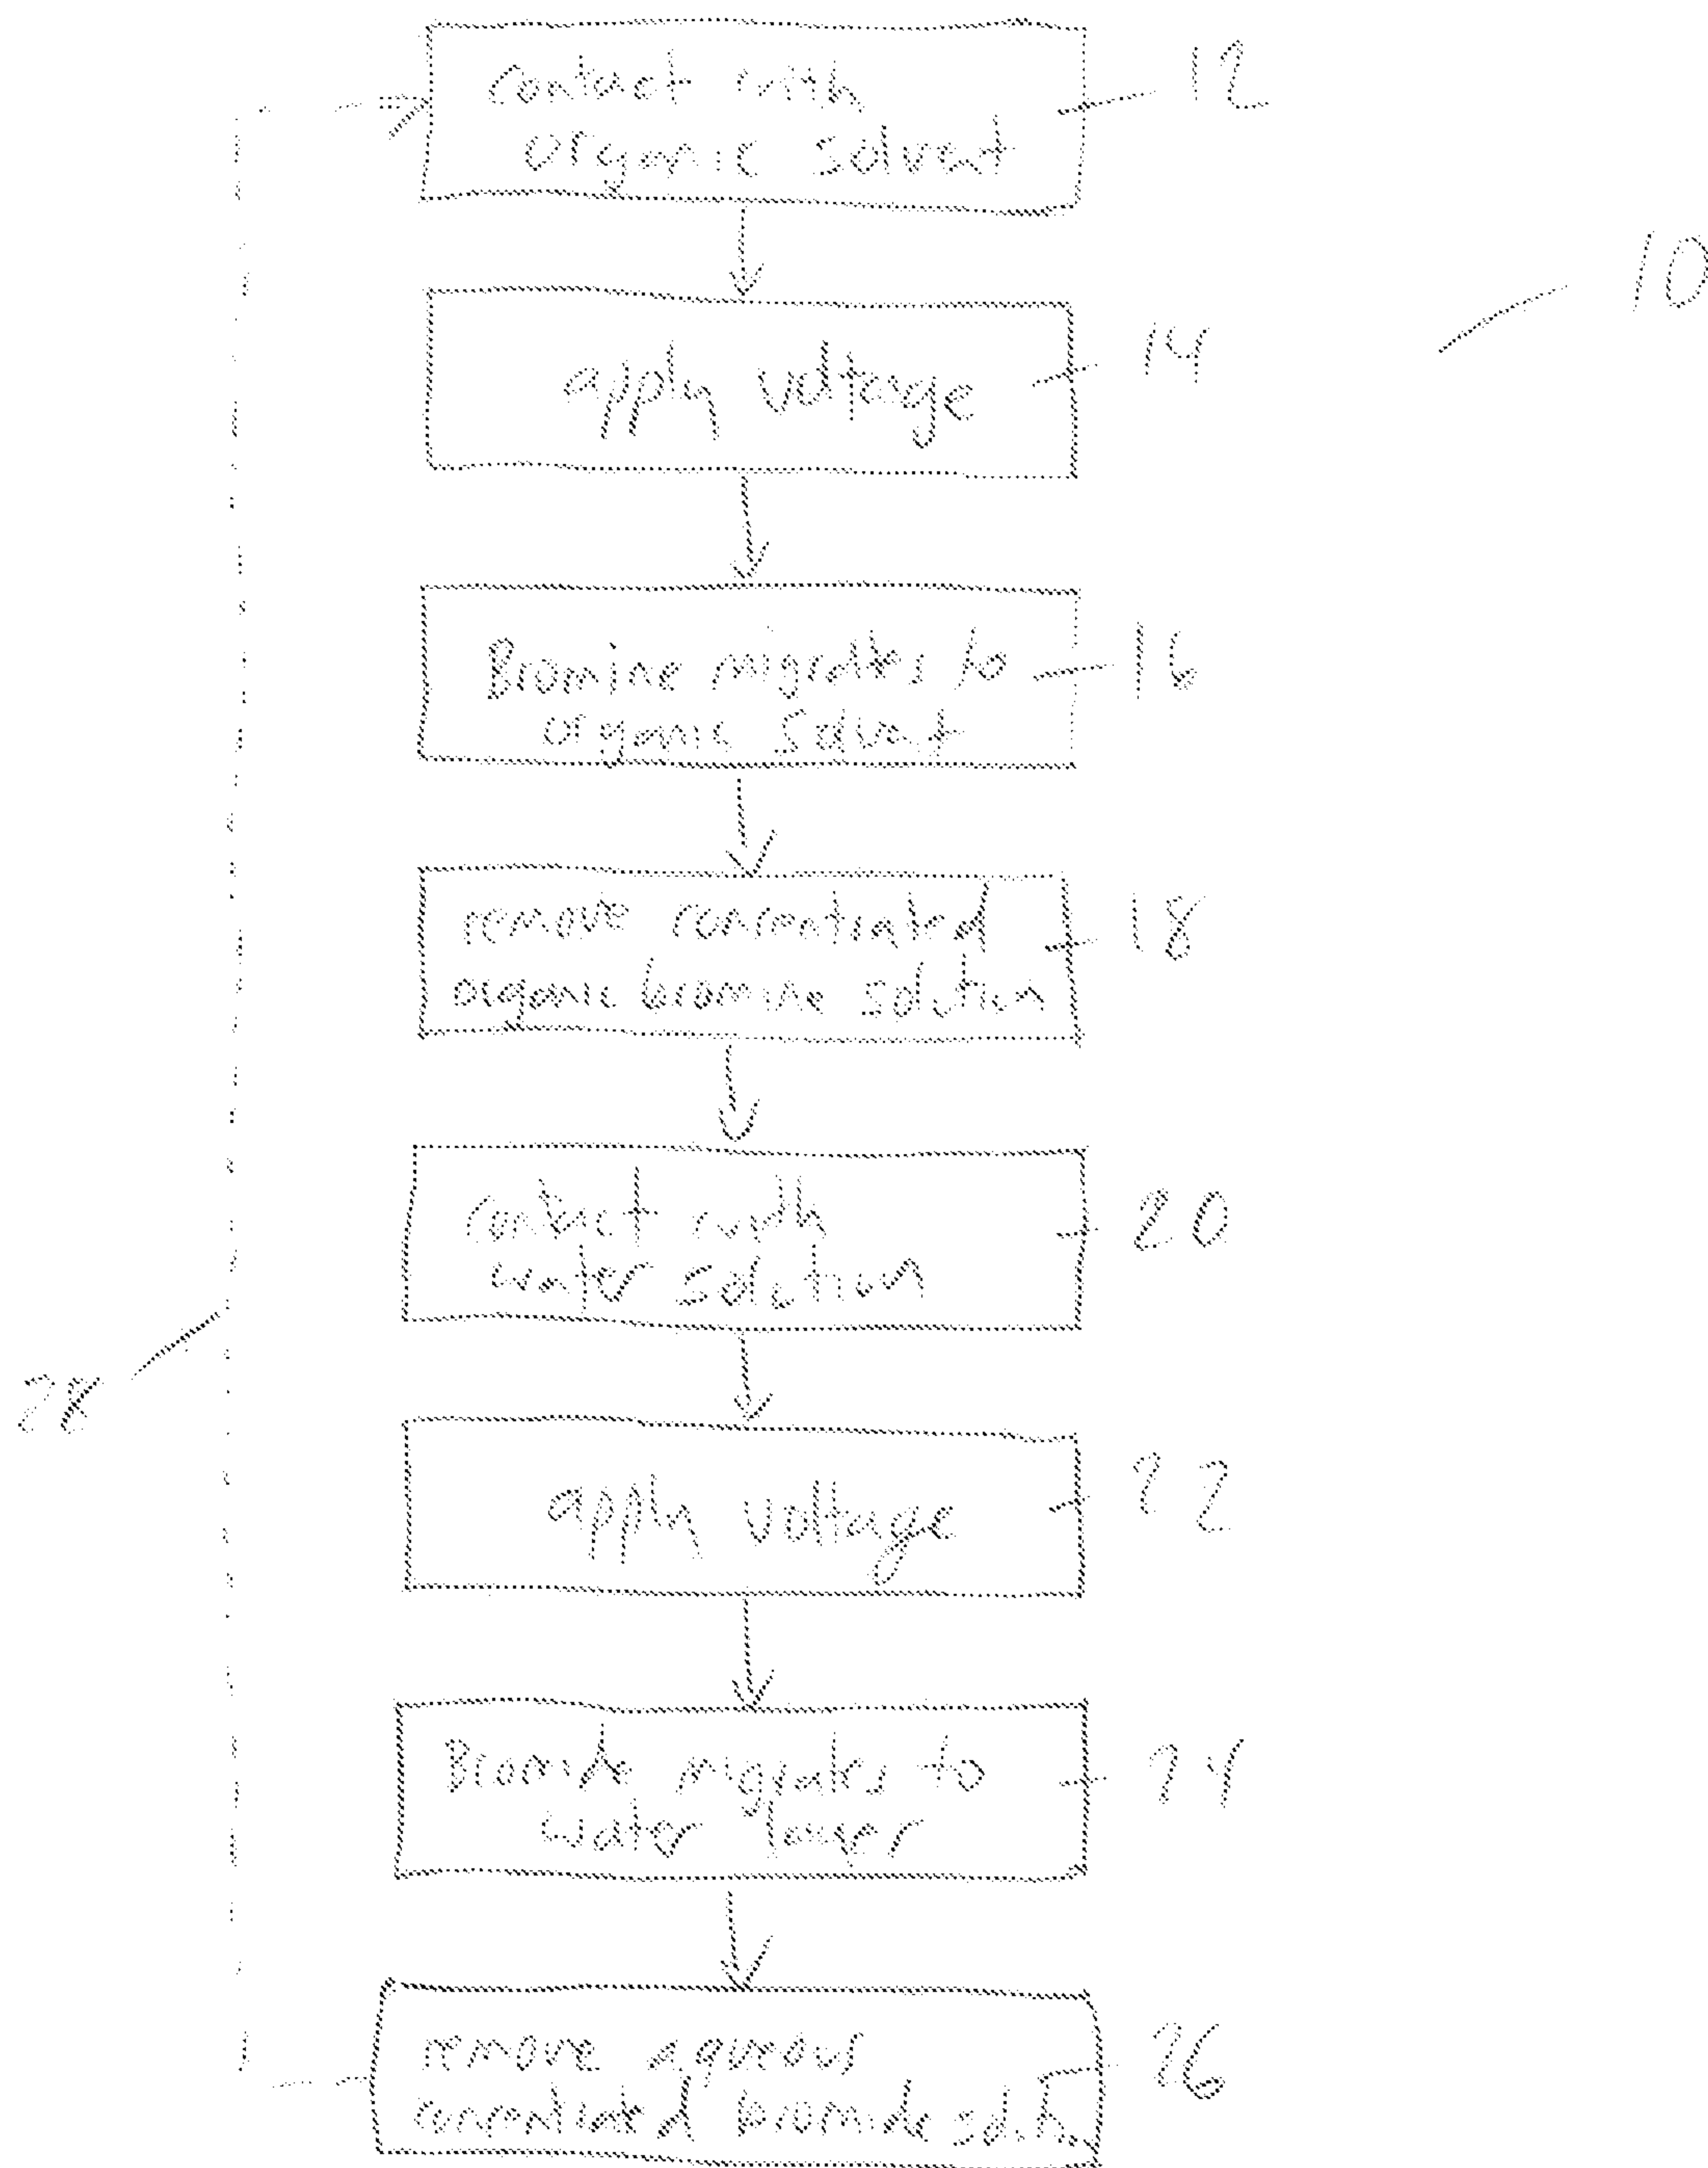 contact with
organic solvent
12
10
apply voltage
14
Bromine migrates to
organic Solvent
16
remove concentrated
organic bromine solution
18
contact with
water solution
20
28
apply voltage
22
Bromide migrates to
water layer
24
remove aqueous
concentrated bromide solutn
26